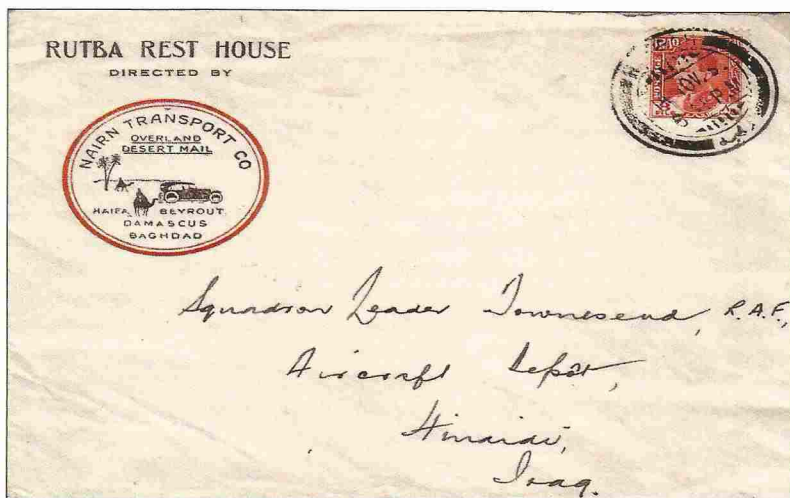 RUTBA REST HOUSE
DIRECTED BY
NAIRN TRANSPORT CO
OVERLAND
DESERT MAIL
HAIFA BEYROUT
DAMASCUS
BAGHDAD
Squadron Leader Townesend, R.A.F.,
Aircraft Depôt,
Hinaidi,
Iraq.